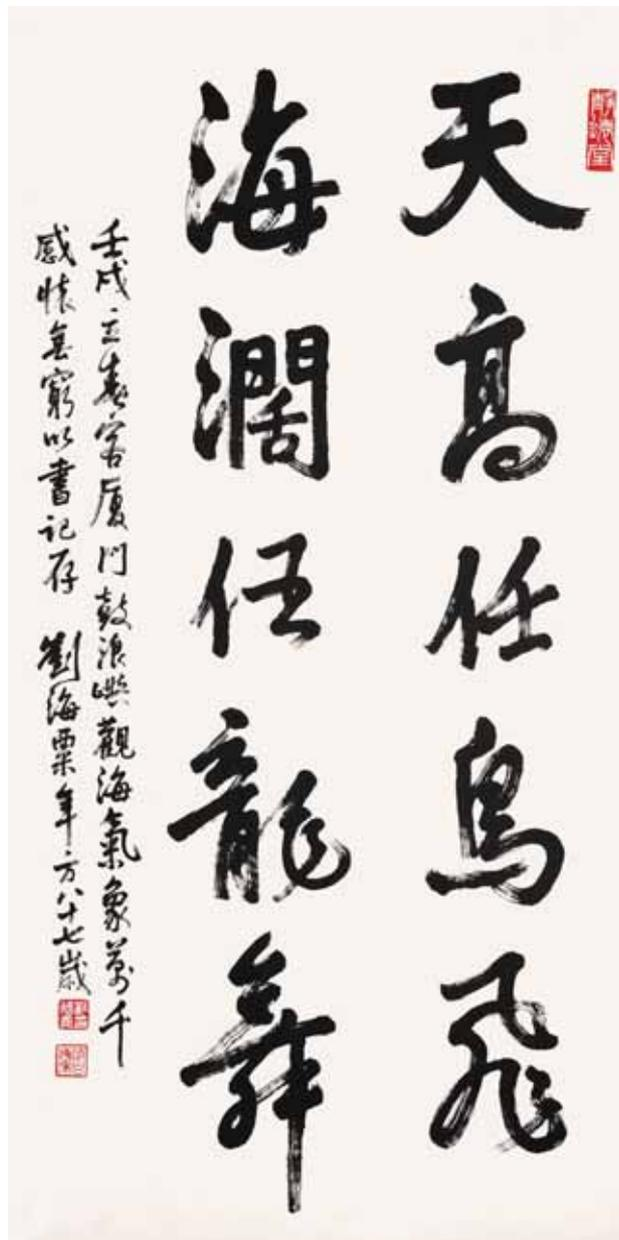 天高任鳥飛
海濶任龍舞
壬戌立春客厦門鼓浪嶼觀海氣象萬千
感懷無窮以書記存 劉海粟年方八十七歲